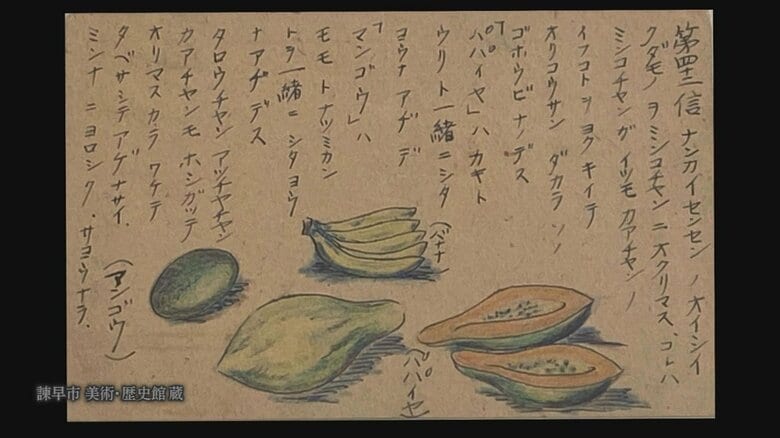 第四十二信 ナンカイセンセン ノ オイシイ
クダモノ ヲ ミンコチャン ニ オクリマス、コレハ
ミンコチャンガ イツモ カアチャン ノ
イフコト ヲ ヨク キイテ
オリコウサン ダカラ ソノ
ゴホウビ ナノデス
「パパイヤ」ハ カキト
ウリト 一緒ニ シタ
ヨウナ アヂ デ
「マンゴウ」ハ
モモ ト ナツミカン
トヲ 一緒ニ シタヨウ
ナアヂデス
タロウチャン アツチャチャン
カアチャンモ ホシガッテ
オリマスカラ ワケテ
タベサシテアゲナサイ.
ミンナ ニ ヨロシク.サヨウナラ.
(バナナ)
(アンゴウ)
(パパイヤ)
諫早市 美術・歴史館 蔵